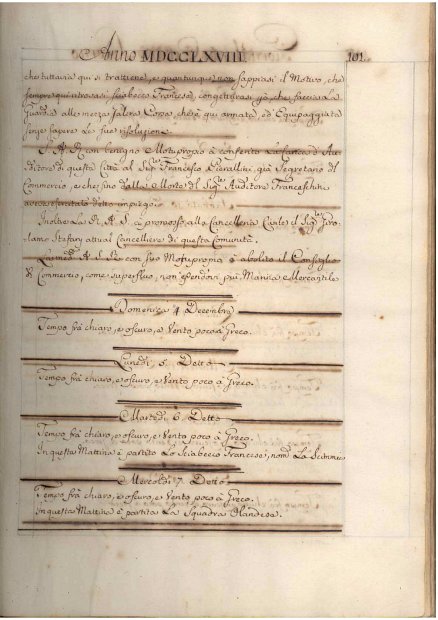 Anno MDCCLXVIII. 101
che tuttavia qui si trattiene, e quantunque non sappiasi il Motivo, che
sempre qui ritrovasi Sciabecco Francese, congetturasi già, che faccia la
Guardia alle mezza Galera Corsa, che è qui armata, ed Equipaggiata
senza sapere la sue risoluzione.
S. A. R. con benigno Motuproprio à conferito la Carica d'Au
ditore di questa Città al Sigr. Francesco Pierallini, già Segretario del
Commercio, e che fino dalla Morte del Sigr. Auditore Franceschini
aveva esercitato detto impiego.
Inoltre La R. A. S. à promosso alla Cancelleria Civile il Sigr. Giro-
lamo Stefani attual Cancelliere di questa Comunità.
La med.a A. S. R. con suo Motuproprio à abolito il Consiglio
di Commercio, come superfluo, non essendovi più Marina e Mercantile
Domenica 4 Decembre
Tempo frà chiaro, e oscuro, e Vento poco à Greco.
Lunedì 5. Detto
Tempo frà chiaro, e oscuro, e Vento poco à Greco.
Martedì 6. Detto
Tempo frà chiaro, e oscuro, e Vento poco à Greco.
In questa Mattina è partito Lo Sciabecco Francese, nom.o La Scimmia
Mercoldì 7. Detto
Tempo frà chiaro, e oscuro, e Vento poco à Greco.
In questa Mattina è partita La Squadra Olandese.